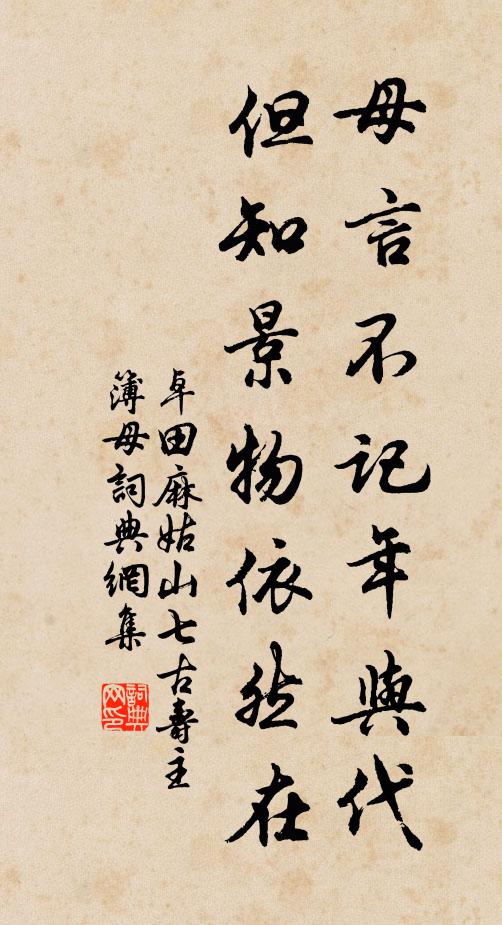 母言不记年與代
但知景物依然在
卓田麻姑山七古壽主
簿母詞典網集
詞典網印